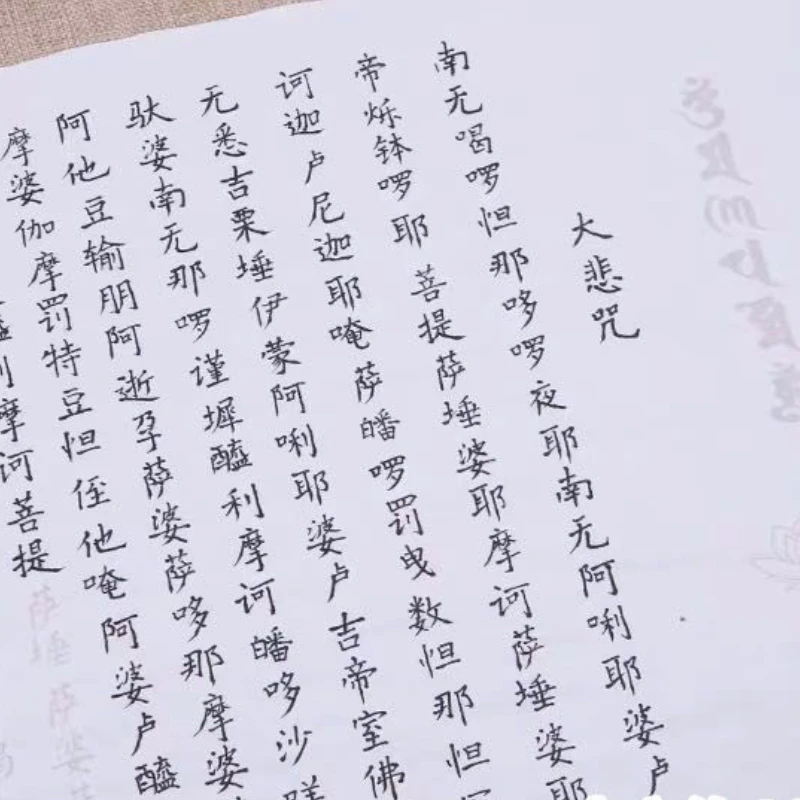 大悲咒
南无喝啰怛那哆啰夜耶南无阿唎耶婆卢
帝烁钵啰耶菩提萨埵婆耶摩诃萨埵婆耶
诃迦卢尼迦耶唵萨皤啰罚曳数怛那怛
无悉吉栗埵伊蒙阿唎耶婆卢吉帝室佛
驮婆南无那啰谨墀醯利摩诃皤哆沙
阿他豆输朋阿逝孕萨婆萨哆那摩婆
摩婆伽摩罚特豆怛侄他唵阿婆卢醯
利摩诃菩提